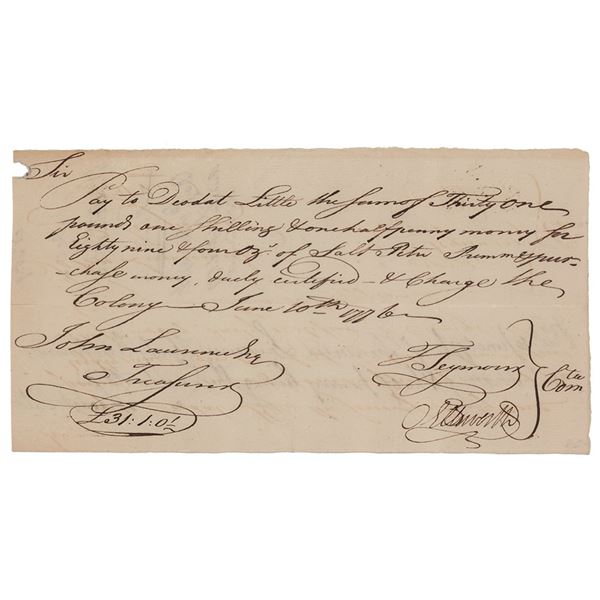 Sir
Pay to Deodat Little the sum of Thirty One
pounds one Shilling & one half penny money for
Eighty nine & four Oz. of Salt Petre Premm & pur-
-chase money, duely certified - & Charge the
Colony - June 10th 1776
John Lawrence Esq
Treasurer
£31:1:0½
T Seymour
Ellsworth
Comtee